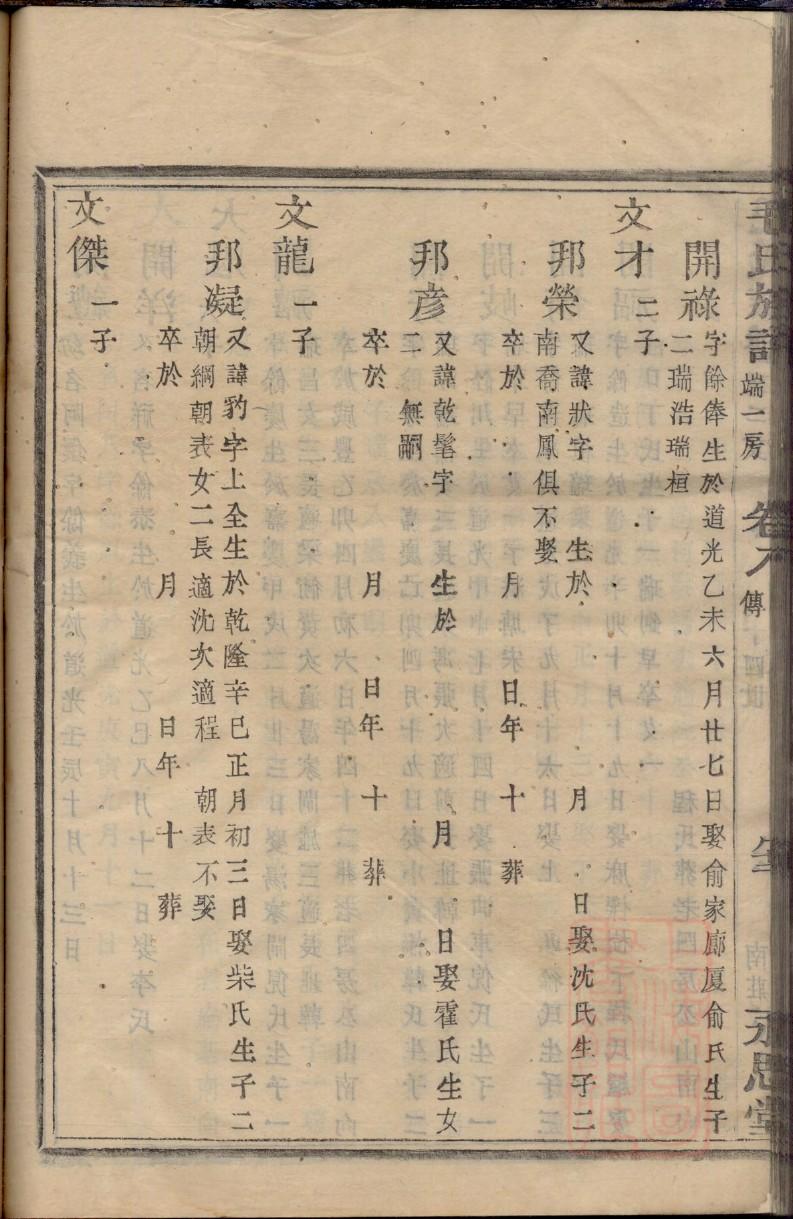 毛氏族譜 端二房 卷八 傳 永思堂
開祿 字餘俸生於道光乙未六月廿七日娶俞家廊厦俞氏生子
二瑞浩瑞桓
文才 二子
邦榮 又諱狀字 生於 月 日娶沈氏生子二
南喬南鳳俱不娶
卒於 月 日年 十 葬
邦彦 又諱乾髦字 生於 月 日娶霍氏生女
二 無嗣
卒於 月 日年 十 葬
文龍 一子
邦凝 又諱豹字上全生於乾隆辛巳正月初三日娶柴氏生子二
朝綱朝表女二長適沈次適程 朝表不娶
卒於 月 日年 十 葬
文傑 一子